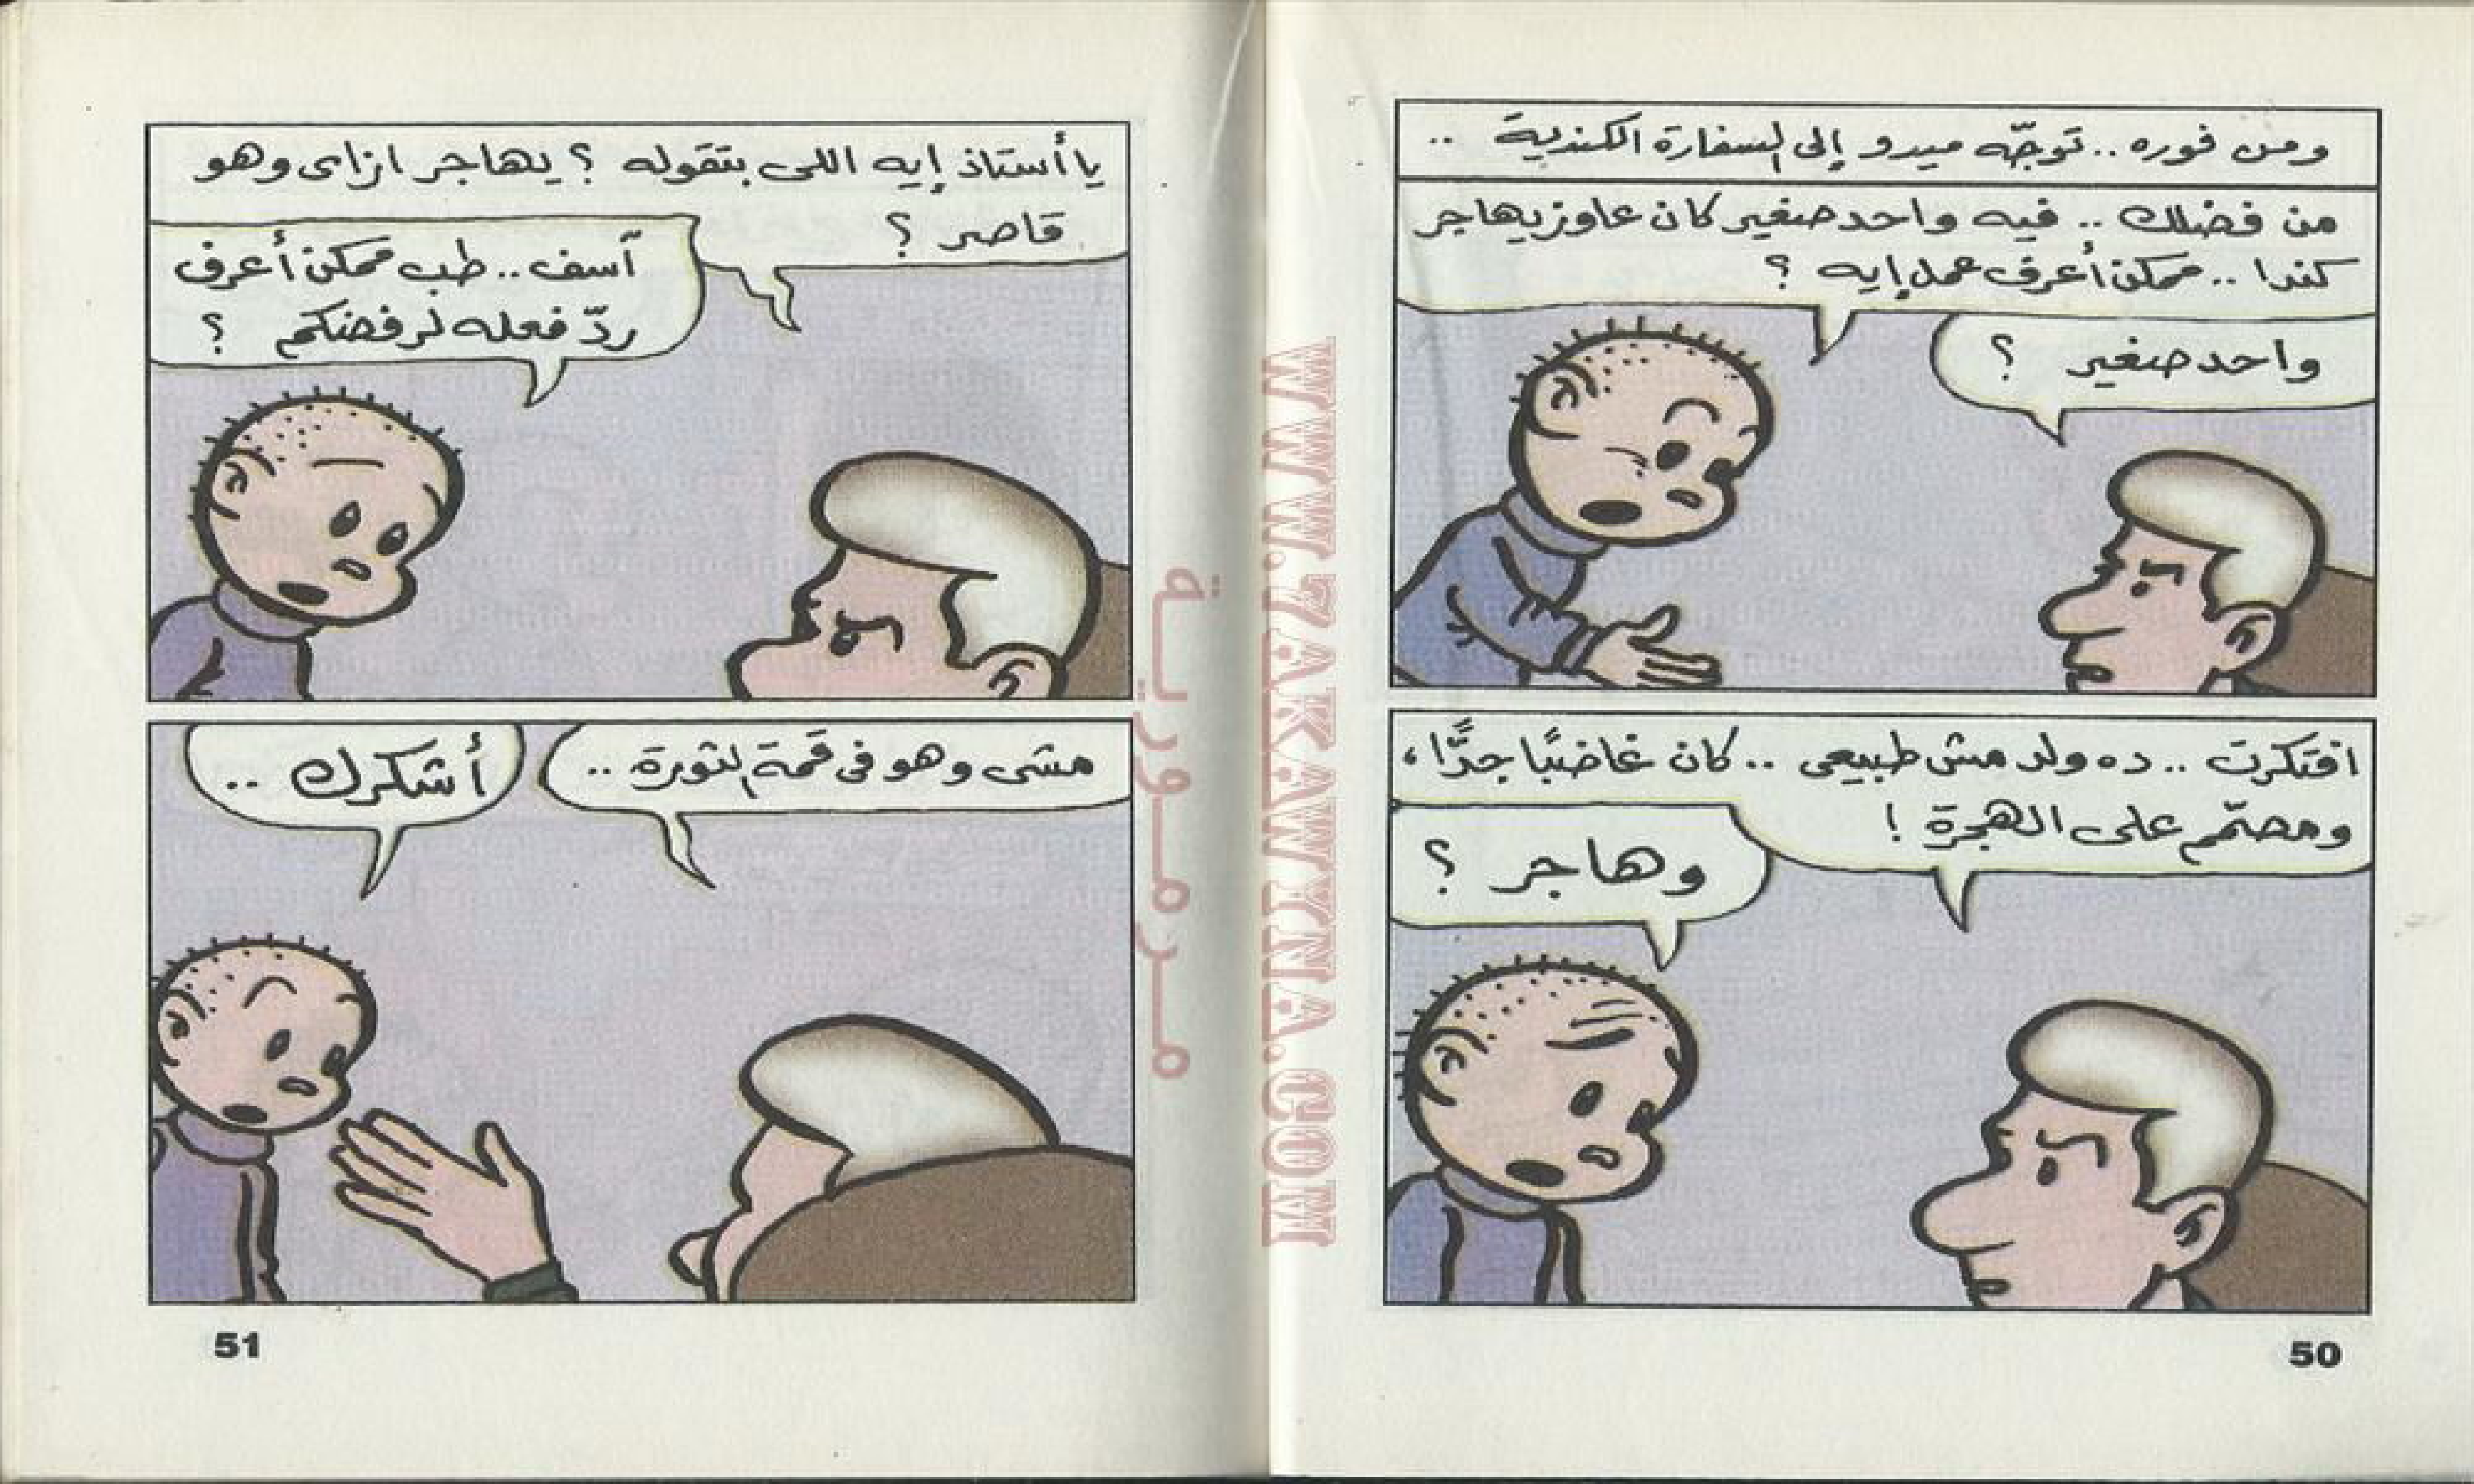 ومن فوره .. توجّه ميدو إلى السفارة الكندية ..
من فضلك .. فيه واحد صغير كان عاوز يهاجر
كندا .. ممكن أعرف عمل إيه ؟
واحد صغير ؟
افتكرت .. ده ولد مش طبيعى .. كان غاضبًا جدًّا ،
ومصمّم على الهجرة !
وهاجر ؟
50
يا أستاذ إيه اللى بتقوله ؟ يهاجر ازاى وهو
قاصر ؟
آسف .. طب ممكن أعرف
ردّ فعله لرفضكم ؟
مشى وهو فى قمة الثورة ..
أشكرك ..
51
مرمورية
WWW.7AKAWYNA.COM